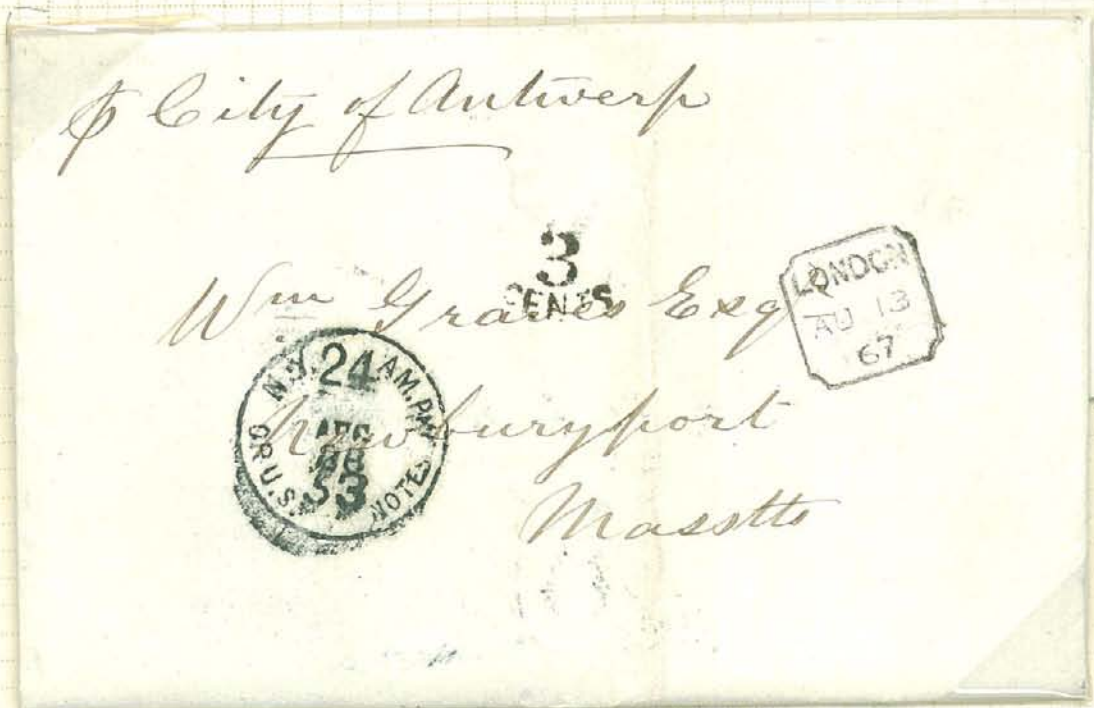 ₱ City of Antwerp
3
CENTS
Wm Graves Esq
LONDON
AU 13
67
N.Y. 24 AM. PKT
OR U.S. 33 NOTES
Newburyport
Masstts